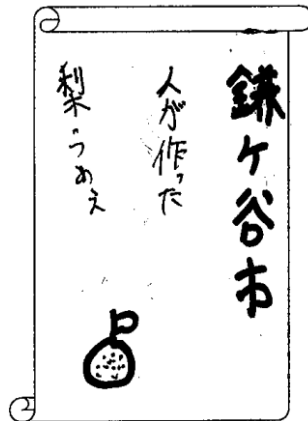 鎌ヶ谷市
人が作った
梨うめえ